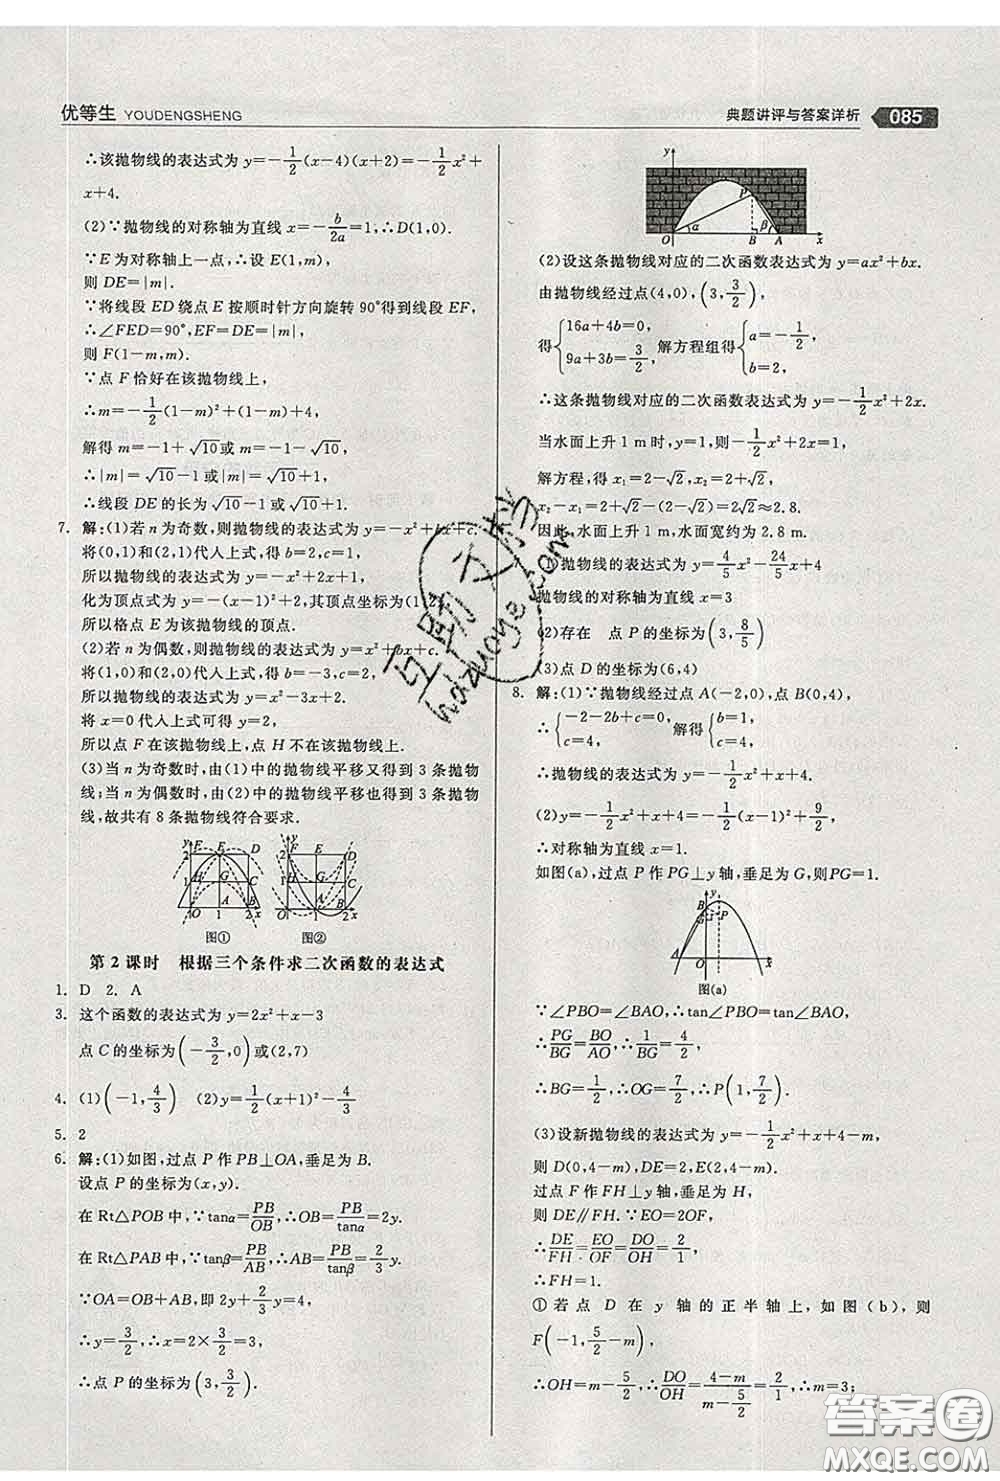 优等生 YOUDENGSHENG
典题讲评与答案详析 085
∴该抛物线的表达式为 y=-1/2(x-4)(x+2)=-1/2x²+
x+4.
(2)∵抛物线的对称轴为直线 x=-b/2a=1,∴D(1,0).
∵E 为对称轴上一点,∴设 E(1,m),
则 DE=|m|.
∵将线段 ED 绕点 E 按顺时针方向旋转 90°得到线段 EF,
∴∠FED=90°,EF=DE=|m|,
则 F(1-m,m).
∵点 F 恰好在该抛物线上,
∴m=-1/2(1-m)²+(1-m)+4,
解得 m=-1+√10或 m=-1-√10,
∴|m|=√10-1或|m|=√10+1,
∴线段 DE 的长为√10-1或√10+1.
7. 解:(1)若 n 为奇数,则抛物线的表达式为 y=-x²+bx+c.
将(0,1)和(2,1)代人上式,得 b=2,c=1,
所以抛物线的表达式为 y=-x²+2x+1,
化为顶点式为 y=-(x-1)²+2,其顶点坐标为(1,2),
所以格点 E 为该抛物线的顶点.
(2)若 n 为偶数,则抛物线的表达式为 y=x²+bx+c.
将(1,0)和(2,0)代人上式,得 b=-3,c=2,
所以抛物线的表达式为 y=x²-3x+2.
将 x=0代人上式可得 y=2,
所以点 F 在该抛物线上,点 H 不在该抛物线上.
(3)当 n 为奇数时,由(1)中的抛物线平移又得到 3 条抛物
线;当 n 为偶数时,由(2)中的抛物线平移也得到 3 条抛物
线,故共有 8 条抛物线符合要求.
y F E D 2 H G C 1 A B O 1 2 x
图①
y F E D 2 H G C 1 A B O 1 2 x
图②
第 2 课时 根据三个条件求二次函数的表达式
1. D 2. A
3. 这个函数的表达式为 y=2x²+x-3
点 C 的坐标为(-3/2,0)或(2,7)
4. (1)(-1,4/3) (2)y=1/2(x+1)²-4/3
5. 2
6. 解:(1)如图,过点 P 作 PB⊥OA,垂足为 B.
设点 P 的坐标为(x,y).
在 Rt△POB 中,∵tanα=PB/OB,∴OB=PB/tanα=2y.
在 Rt△PAB 中,∵tanβ=PB/AB,∴AB=PB/tanβ=2/3y.
∵OA=OB+AB,即 2y+2/3y=4,
∴y=3/2,∴x=2×3/2=3,
∴点 P 的坐标为(3,3/2).
y P α β O B A x
(2)设这条抛物线对应的二次函数表达式为 y=ax²+bx.
由抛物线经过点(4,0),(3,3/2),
得{16a+4b=0, 9a+3b=3/2, 解方程组得{a=-1/2, b=2,
∴这条抛物线对应的二次函数表达式为 y=-1/2x²+2x.
当水面上升 1 m时,y=1,即-1/2x²+2x=1,
解方程,得 x₁=2-√2,x₂=2+√2,
x₂-x₁=2+√2-(2-√2)=2√2≈2.8.
因此,水面上升 1 m,水面宽约为 2.8 m.
(1)抛物线的表达式为 y=4/5x²-24/5x+4
抛物线的对称轴为直线 x=3
(2)存在 点 P 的坐标为(3,8/5)
(3)点 D 的坐标为(6,4)
8. 解:(1)∵抛物线经过点 A(-2,0),点 B(0,4),
∴{-2-2b+c=0, c=4, 解得{b=1, c=4,
∴抛物线的表达式为 y=-1/2x²+x+4.
(2)y=-1/2x²+x+4=-1/2(x-1)²+9/2,
∴对称轴为直线 x=1.
如图(a),过点 P 作 PG⊥y 轴,垂足为 G,则PG=1.
y B P G A O x
图(a)
∵∠PBO=∠BAO,∴tan∠PBO=tan∠BAO,
∴PG/BG=BO/AO,∴1/BG=4/2,
∴BG=1/2,∴OG=7/2,∴P(1,7/2).
(3)设新抛物线的表达式为 y=-1/2x²+x+4-m,
则 D(0,4-m),DE=2,E(2,4-m).
过点 F 作 FH⊥y 轴,垂足为 H,
则 DE∥FH.∵EO=2OF,
∴DE/FH=EO/OF=DO/OH=2/1,
∴FH=1.
①若点 D 在 y 轴的正半轴上,如图(b),则
F(-1,5/2-m),
∴OH=m-5/2,∴DO/OH=(4-m)/(m-5/2)=2/1,∴m=3;
互助文学
hdzuoye.com
答案圈
MXQE.COM